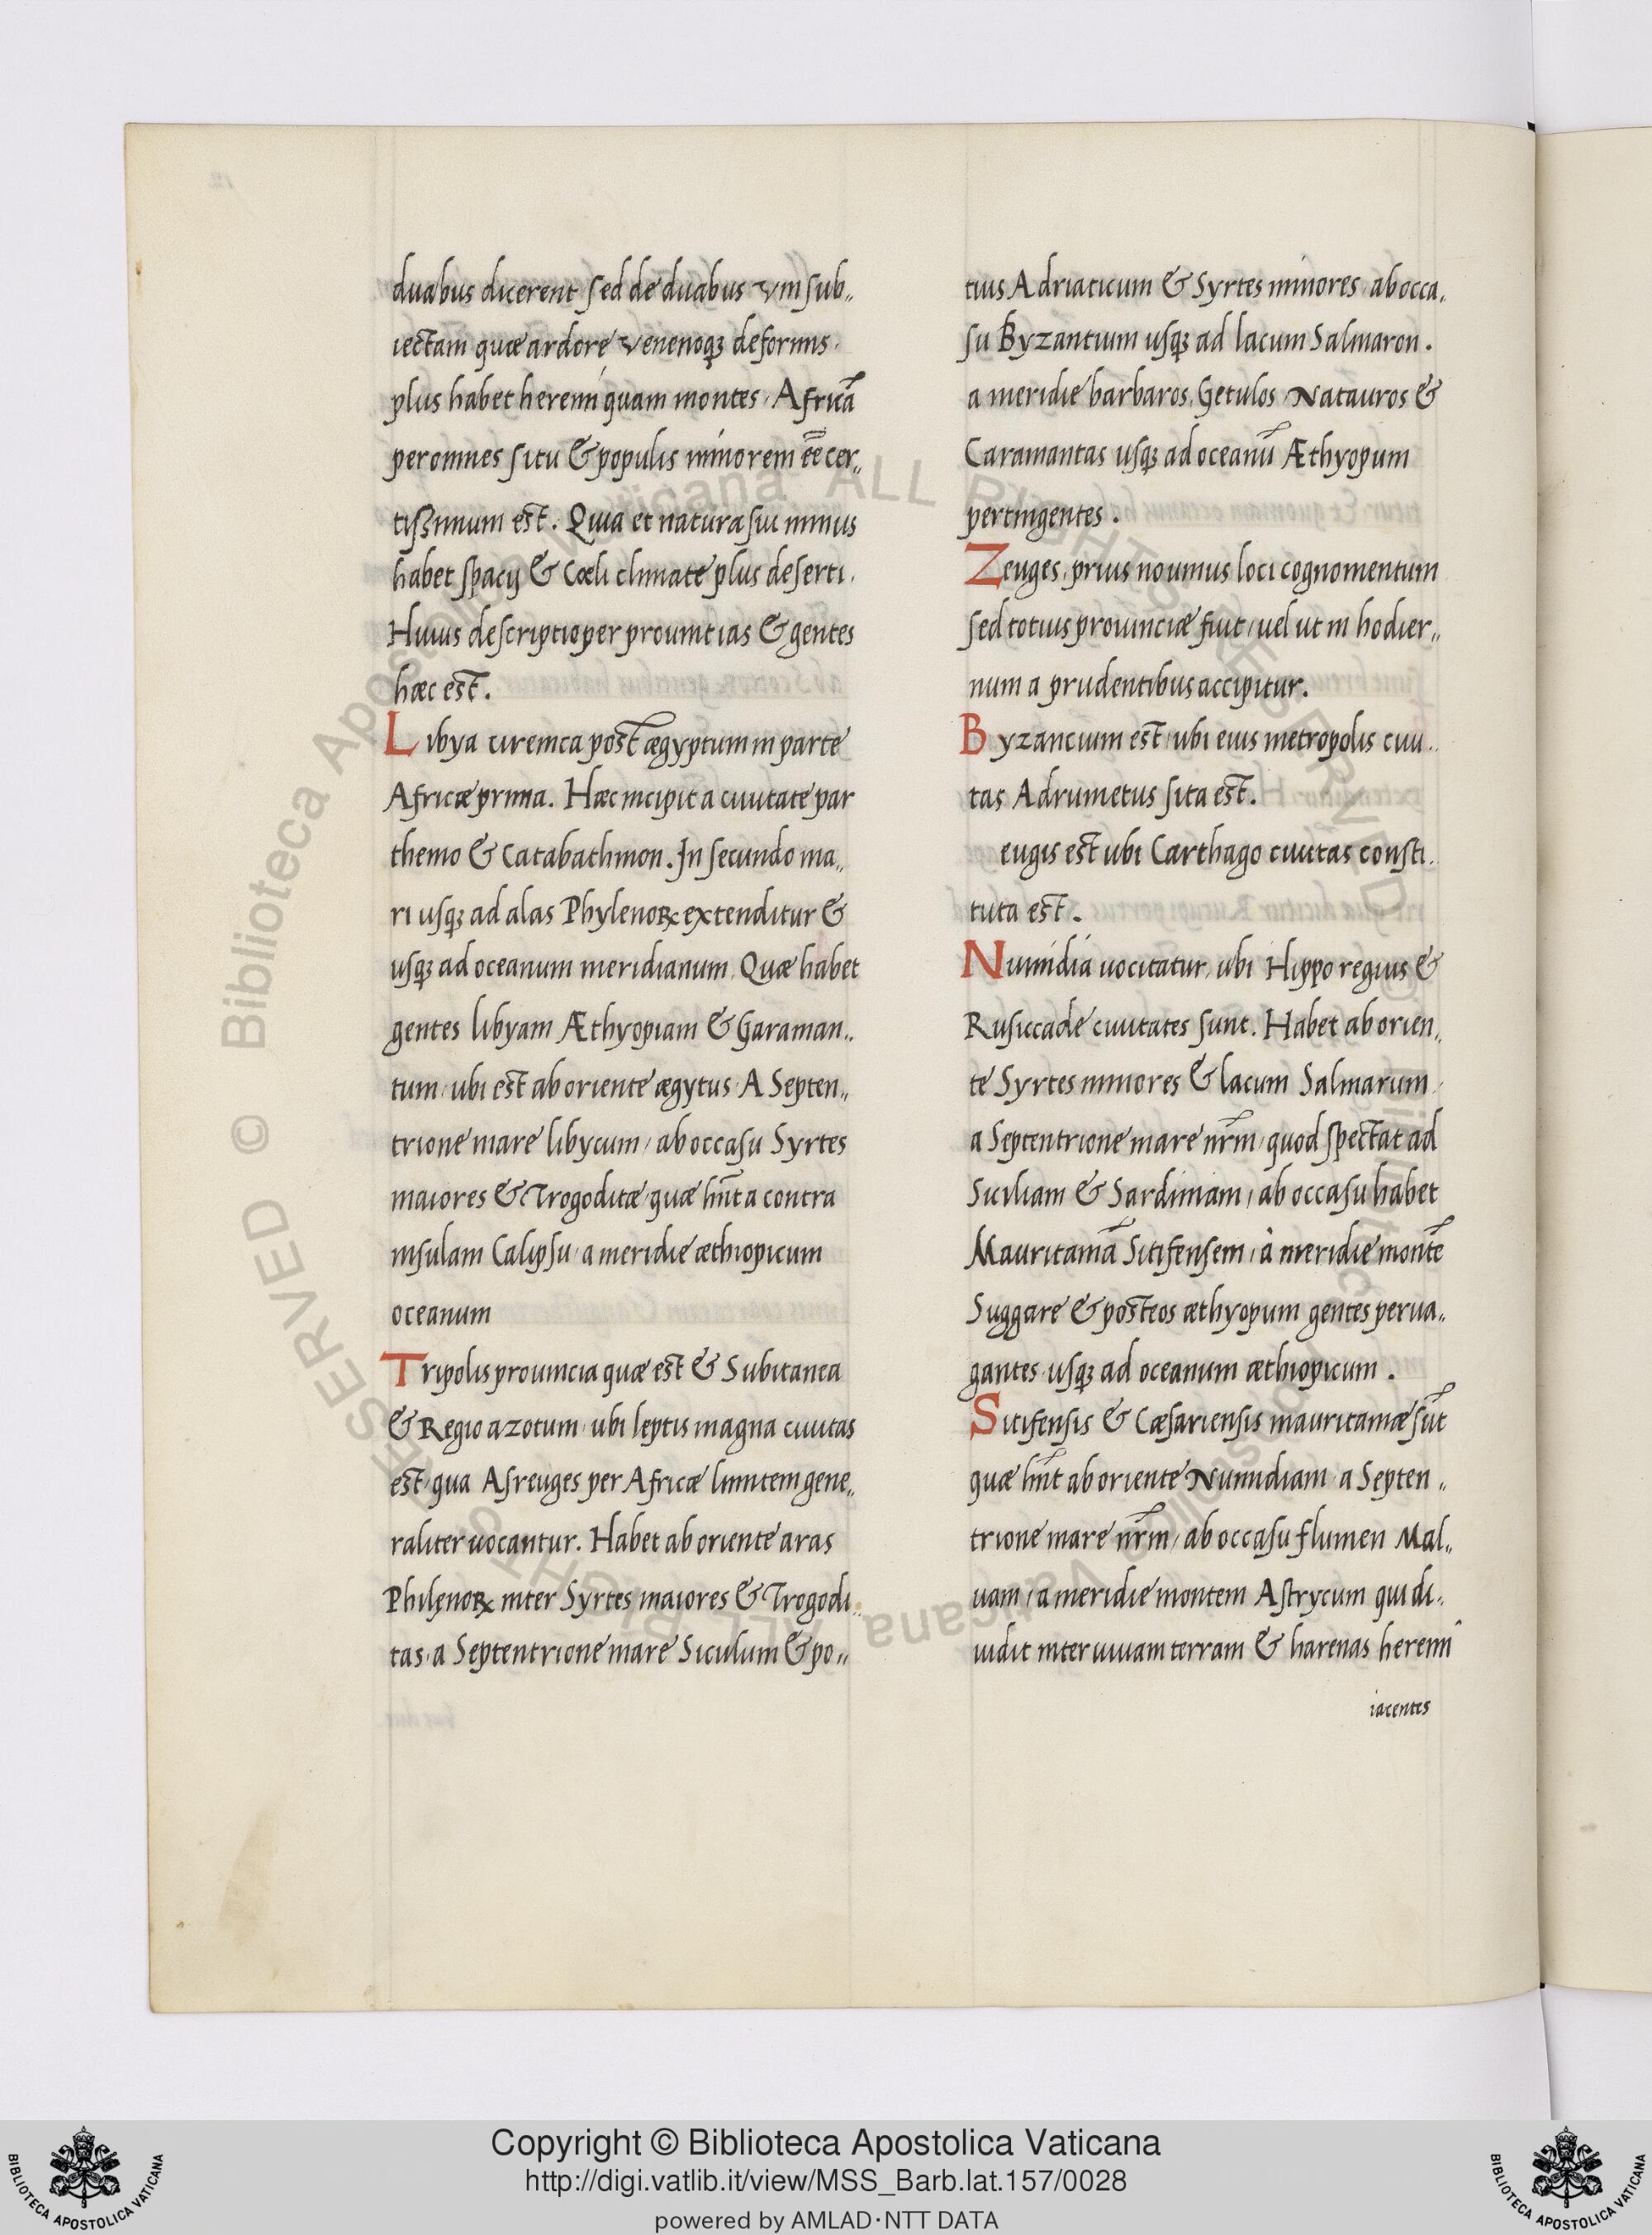 duabus dicerent sed de duabus vni sub„
iectam quæ ardore venenoqꝫ deformis.
plus habet heremi quam montes. Africā
per omnes situ & populis minorem ēē cer„
tissimum est. Quia et natura sui minus
habet spacij & Cœli climate plus deserti.
Huius descriptio per prouintias & gentes
hæc est.
Libya cirenica post ægyptum in parte
Africæ prima. Hæc incipit a ciuitate par
themo & Catabathmon. In secundo ma„
ri usqꝫ ad alas Phylenoꝝ extenditur &
usqꝫ ad oceanum meridianum. Quæ habet
gentes libyam Æthyopiam & Garaman„
tum, ubi est ab oriente ægytus. A Septen„
trione mare libycum, ab occasu Syrtes
maiores & Trogoditæ, quæ hn̄t a contra
insulam Calipsu, a meridie æthiopicum
oceanum
Tripolis prouincia quæ est & Subitanea
& Regio azotum, ubi leptis magna ciuitas
est, qua Asreuges per Africæ limitem gene„
raliter uocantur. Habet ab oriente aras
Philenoꝝ inter Syrtes maiores & Trogodi„
tas, a Septentrione mare Siculum & po„
tius Adriaticum & Syrtes minores, ab occa„
su Byzantium usqꝫ ad lacum Salmaron.
a meridie barbaros, Getulos, Natauros &
Caramantas usqꝫ ad oceanū Æthyopum
pertingentes.
Zeuges, prius no unius loci cognomentum
sed totius prouinciæ fuit, uel ut in hodier„
num a prudentibus accipitur.
Byzancium est, ubi eius metropolis ciui„
tas Adrumetus sita est.
eugis est ubi Carthago ciuitas consti„
tuta est.
Numidia uocitatur, ubi Hippo regius &
Rusiccade ciuitates sunt. Habet ab orien„
te Syrtes minores & lacum Salmarum,
a Septentrione mare nr̄m, quod spectat ad
Siciliam & Sardiniam, ab occasu habet
Mauritaniā Sitifensem, à meridie montē
Suggare & post eos æthyopum gentes perua„
gantes, usqꝫ ad oceanum æthiopicum.
Sitifensis & Cæsariensis mauritaniæ sūt
quæ hn̄t ab oriente Numidiam, a Septen„
trione mare nr̄m, ab occasu flumen Mal„
uam, a meridie montem Astrycum qui di„
uidit inter uiuam terram & harenas heremi
iacentes
© Biblioteca Apostolica Vaticana ALL RIGHTS RESERVED
Copyright © Biblioteca Apostolica Vaticana
http://digi.vatlib.it/view/MSS_Barb.lat.157/0028
powered by AMLAD·NTT DATA
BIBLIOTECA APOSTOLICA VATICANA
BIBLIOTECA APOSTOLICA VATICANA